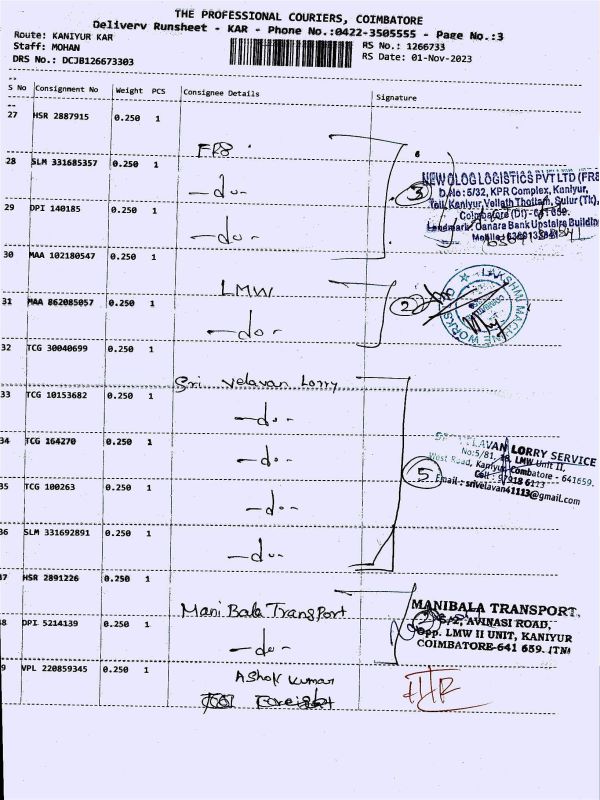 THE PROFESSIONAL COURIERS, COIMBATORE
Delivery Runsheet - KAR - Phone No.:0422-3505555 - Page No.:3
Route: KANIYUR KAR
Staff: MOHAN
DRS No.: DCJB126673303
RS No.: 1266733
RS Date: 01-Nov-2023
S No Consignment No Weight PCS Consignee Details Signature
27 HSR 2887915 0.250 1
FR8
28 SLM 331685357 0.250 1
-do-
29 DPI 140185 0.250 1
-do-
3
NEWOLOG LOGISTICS PVT LTD (FR8
D.No: 5/32, KPR Complex, Kaniyur,
Kaniyur Vellath Thottam, Sulur (Tk),
Coimbatore (Dt) - 641 659.
Landmark: Canara Bank Upstairs Building
30 MAA 102180547 0.250 1
LMW
31 MAA 862085057 0.250 1
-do-
2
LAKSHMI MACHINE WORKS
32 TCG 30040699 0.250 1
Sri Velavan Lorry
33 TCG 10153682 0.250 1
-do-
34 TCG 164270 0.250 1
-do-
35 TCG 100263 0.250 1
-do-
36 SLM 331692891 0.250 1
-do-
5
VELAVAN LORRY SERVICE
No:5/81, LMW Unit II,
West Road, Kaniyur, Coimbatore - 641659.
Cell : 97918 6113
Email : srivelavan41113@gmail.com
37 HSR 2891226 0.250 1
Mani Bala Transport
38 DPI 5214139 0.250 1
-do-
MANIBALA TRANSPORT,
AVINASI ROAD,
Opp. LMW II UNIT, KANIYUR
COIMBATORE-641 659. (TN)
39 VPL 220859345 0.250 1
Ashok Kumar